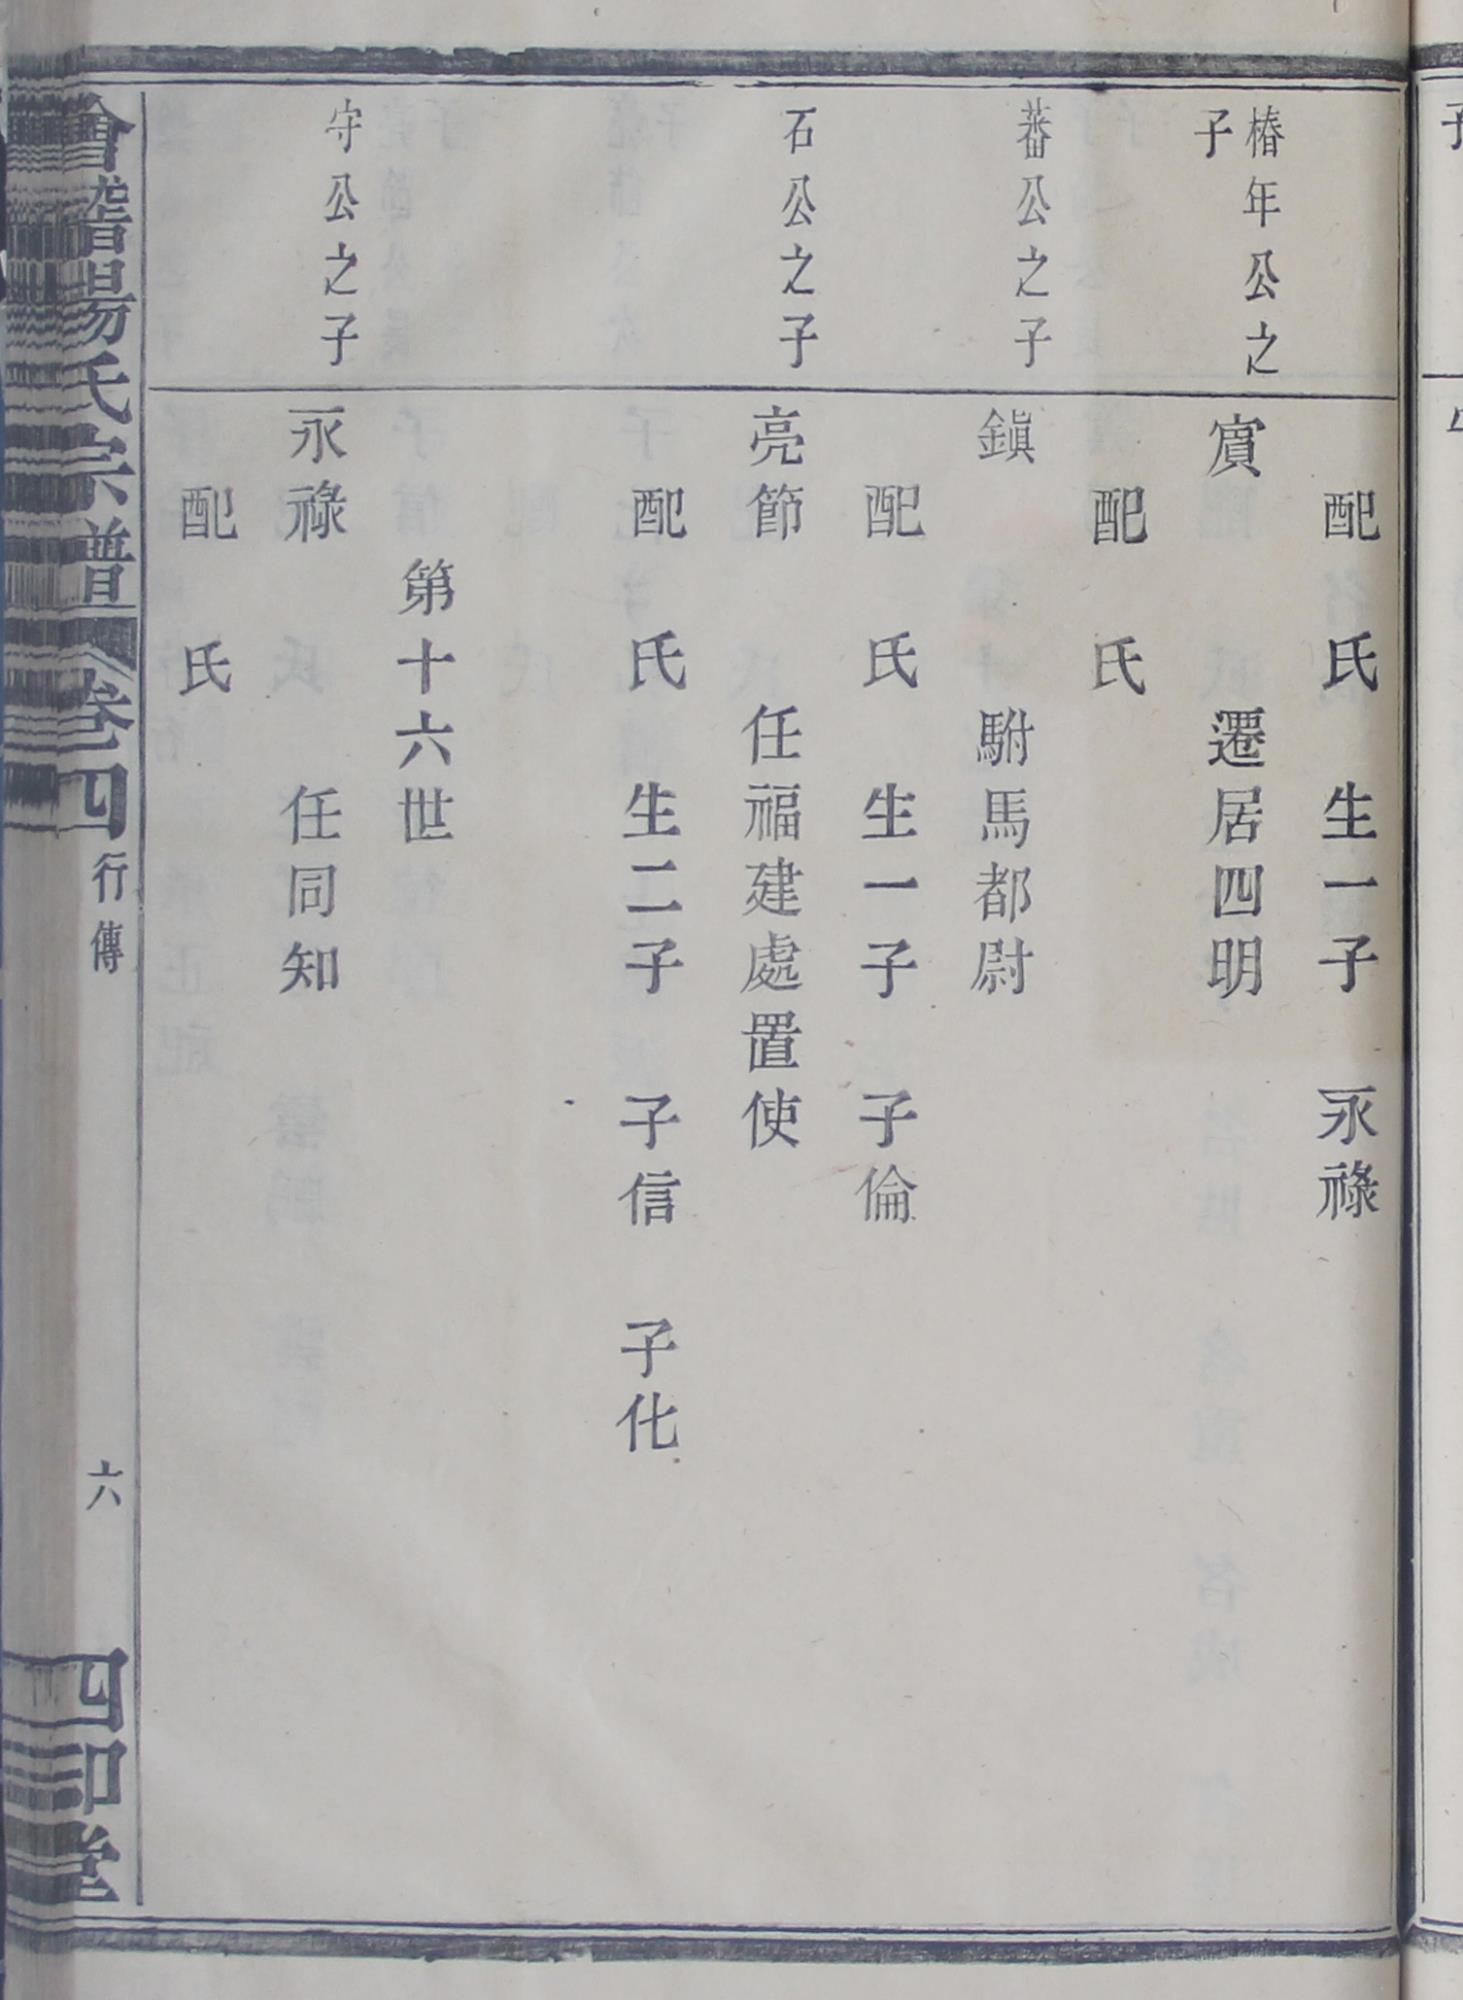 配　氏　生一子　永祿
椿年公之子
賔　遷居四明
配　氏
蕃公之子
鎭　駙馬都尉
配　氏　生一子　子倫
石公之子
亮節　任福建處置使
配　氏　生二子　子信　子化
第十六世
守公之子
永祿　任同知
配　氏
會稽暘氏宗譜　卷四　行傳　六　四印堂